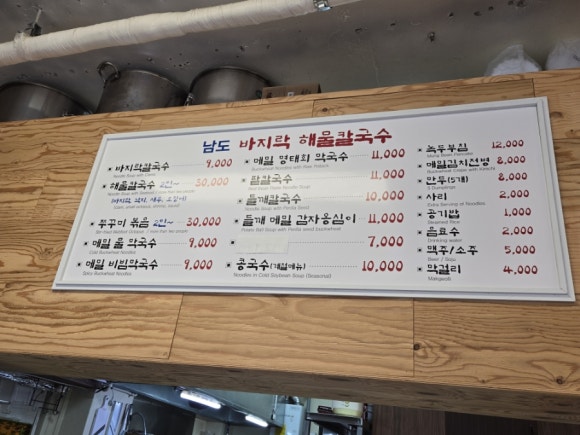 남도 바지락 해물칼국수
바지락칼국수 9,000
Noodle Soup with Clams
해물칼국수 2인~ 30,000
쭈꾸미 볶음 2인~ 30,000
메밀 물 막국수 9,000
Cold Buckwheat Noodles
메밀 비빔막국수 9,000
Spicy Buckwheat Noodles
메밀 명태회 막국수 11,000
팥칼국수 11,000
들깨칼국수 10,000
Noodle Soup with Perilla Seed
들깨 메밀 감자옹심이 11,000
7,000
콩국수(계절메뉴) 10,000
Noodles in Cold Soybean Soup (Seasonal)
녹두부침 12,000
Mung Bean Pancake
메밀김치전병 8,000
Buckwheat Crepe with Kimchi
만두(5개) 8,000
5 Dumplings
사리 2,000
Extra Serving of Noodles
공기밥 1,000
Steamed Rice
음료수 2,000
Drinking water
맥주/소주 5,000
Beer / Soju
막걸리 4,000
Makgeolli